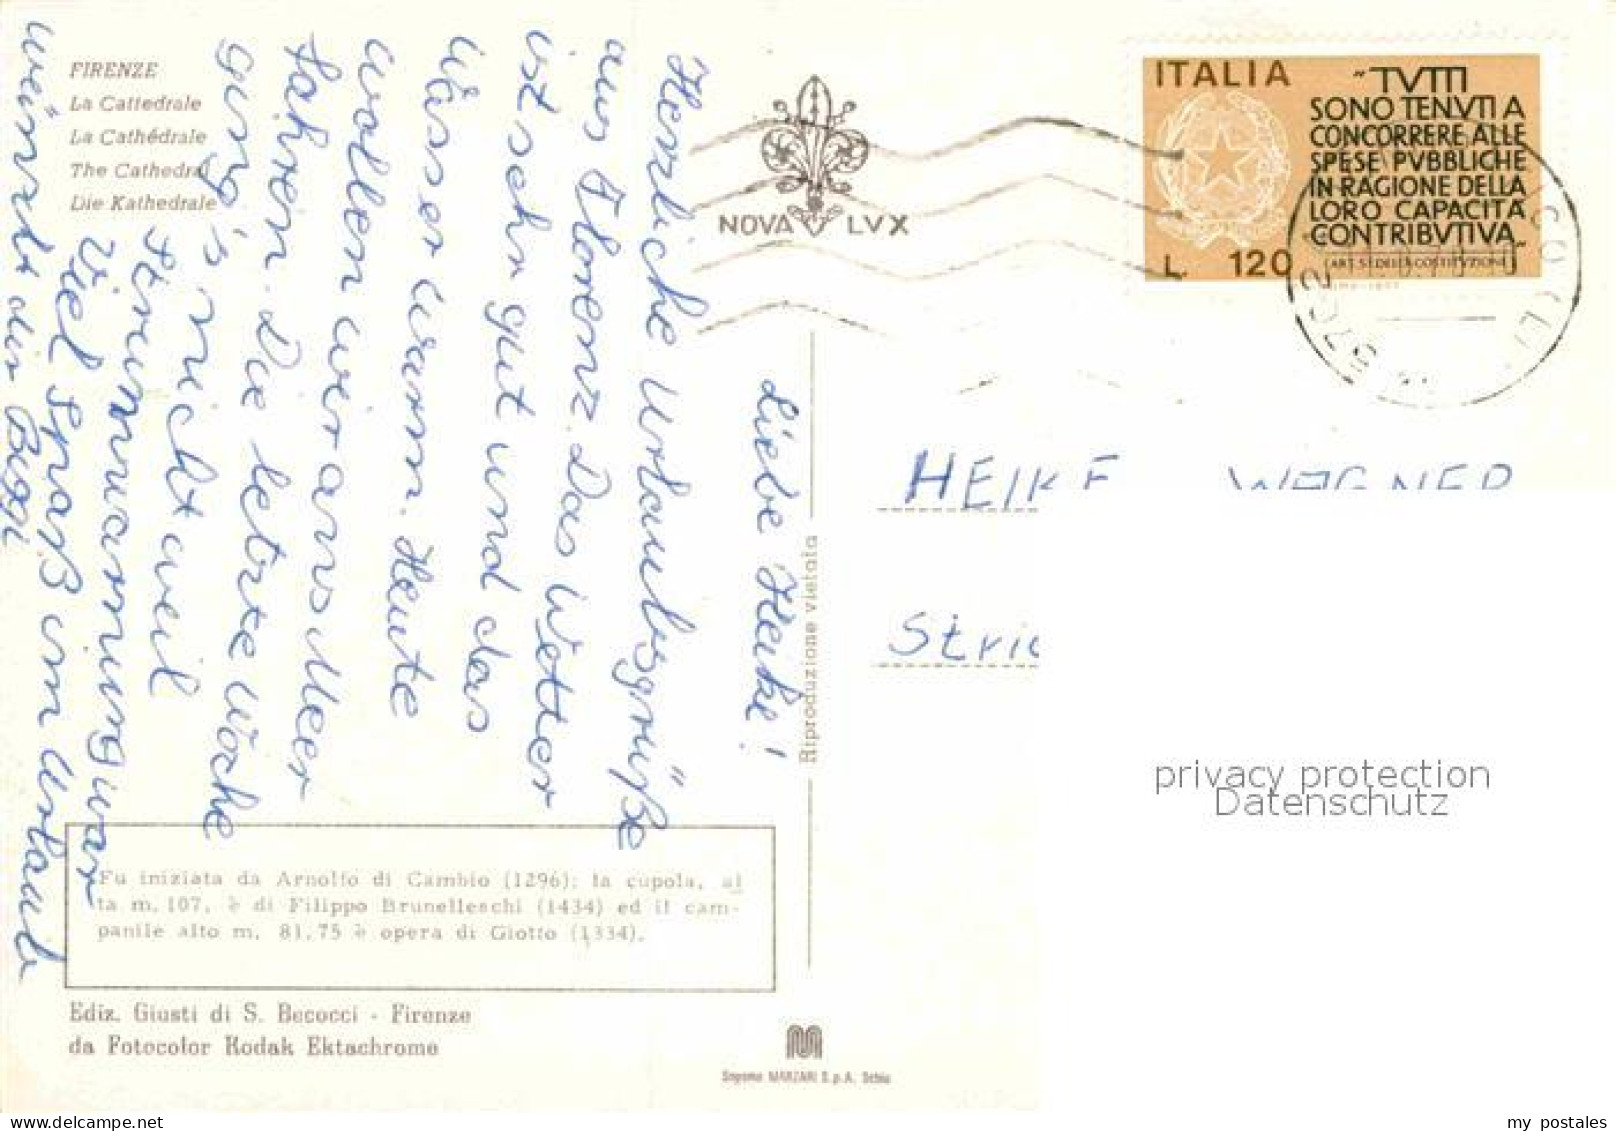 FIRENZE
La Cattedrale
La Cathédrale
The Cathedral
Die Kathedrale
NOVA LVX
ITALIA
"TVTTI
SONO TENVTI A
CONCORRERE ALLE
SPESE PVBBLICHE
IN RAGIONE DELLA
LORO CAPACITA
CONTRIBVTIVA"
(ART. 53 DELLA COSTITVZIONE)
L. 120
Liebe Heike!
Herzliche Urlaubsgrüße
aus Florenz. Das Wetter
ist sehr gut und das
Wasser warm. Heute
wollen wir ans Meer
fahren. Die letzte Woche
ging's nicht weil
Sturmwarnung war
Viel Spaß im Urlaub
wünscht dir Biggi
HEIKE WAGNER
Stric
Riproduzione vietata
privacy protection
Datenschutz
Fu iniziata da Arnolfo di Cambio (1296); la cupola, al
ta m. 107, è di Filippo Brunelleschi (1434) ed il cam-
panile alto m. 81,75 è opera di Giotto (1334).
Ediz. Giusti di S. Becocci - Firenze
da Fotocolor Kodak Ektachrome
MARZARI S.p.A. Schio
my postales